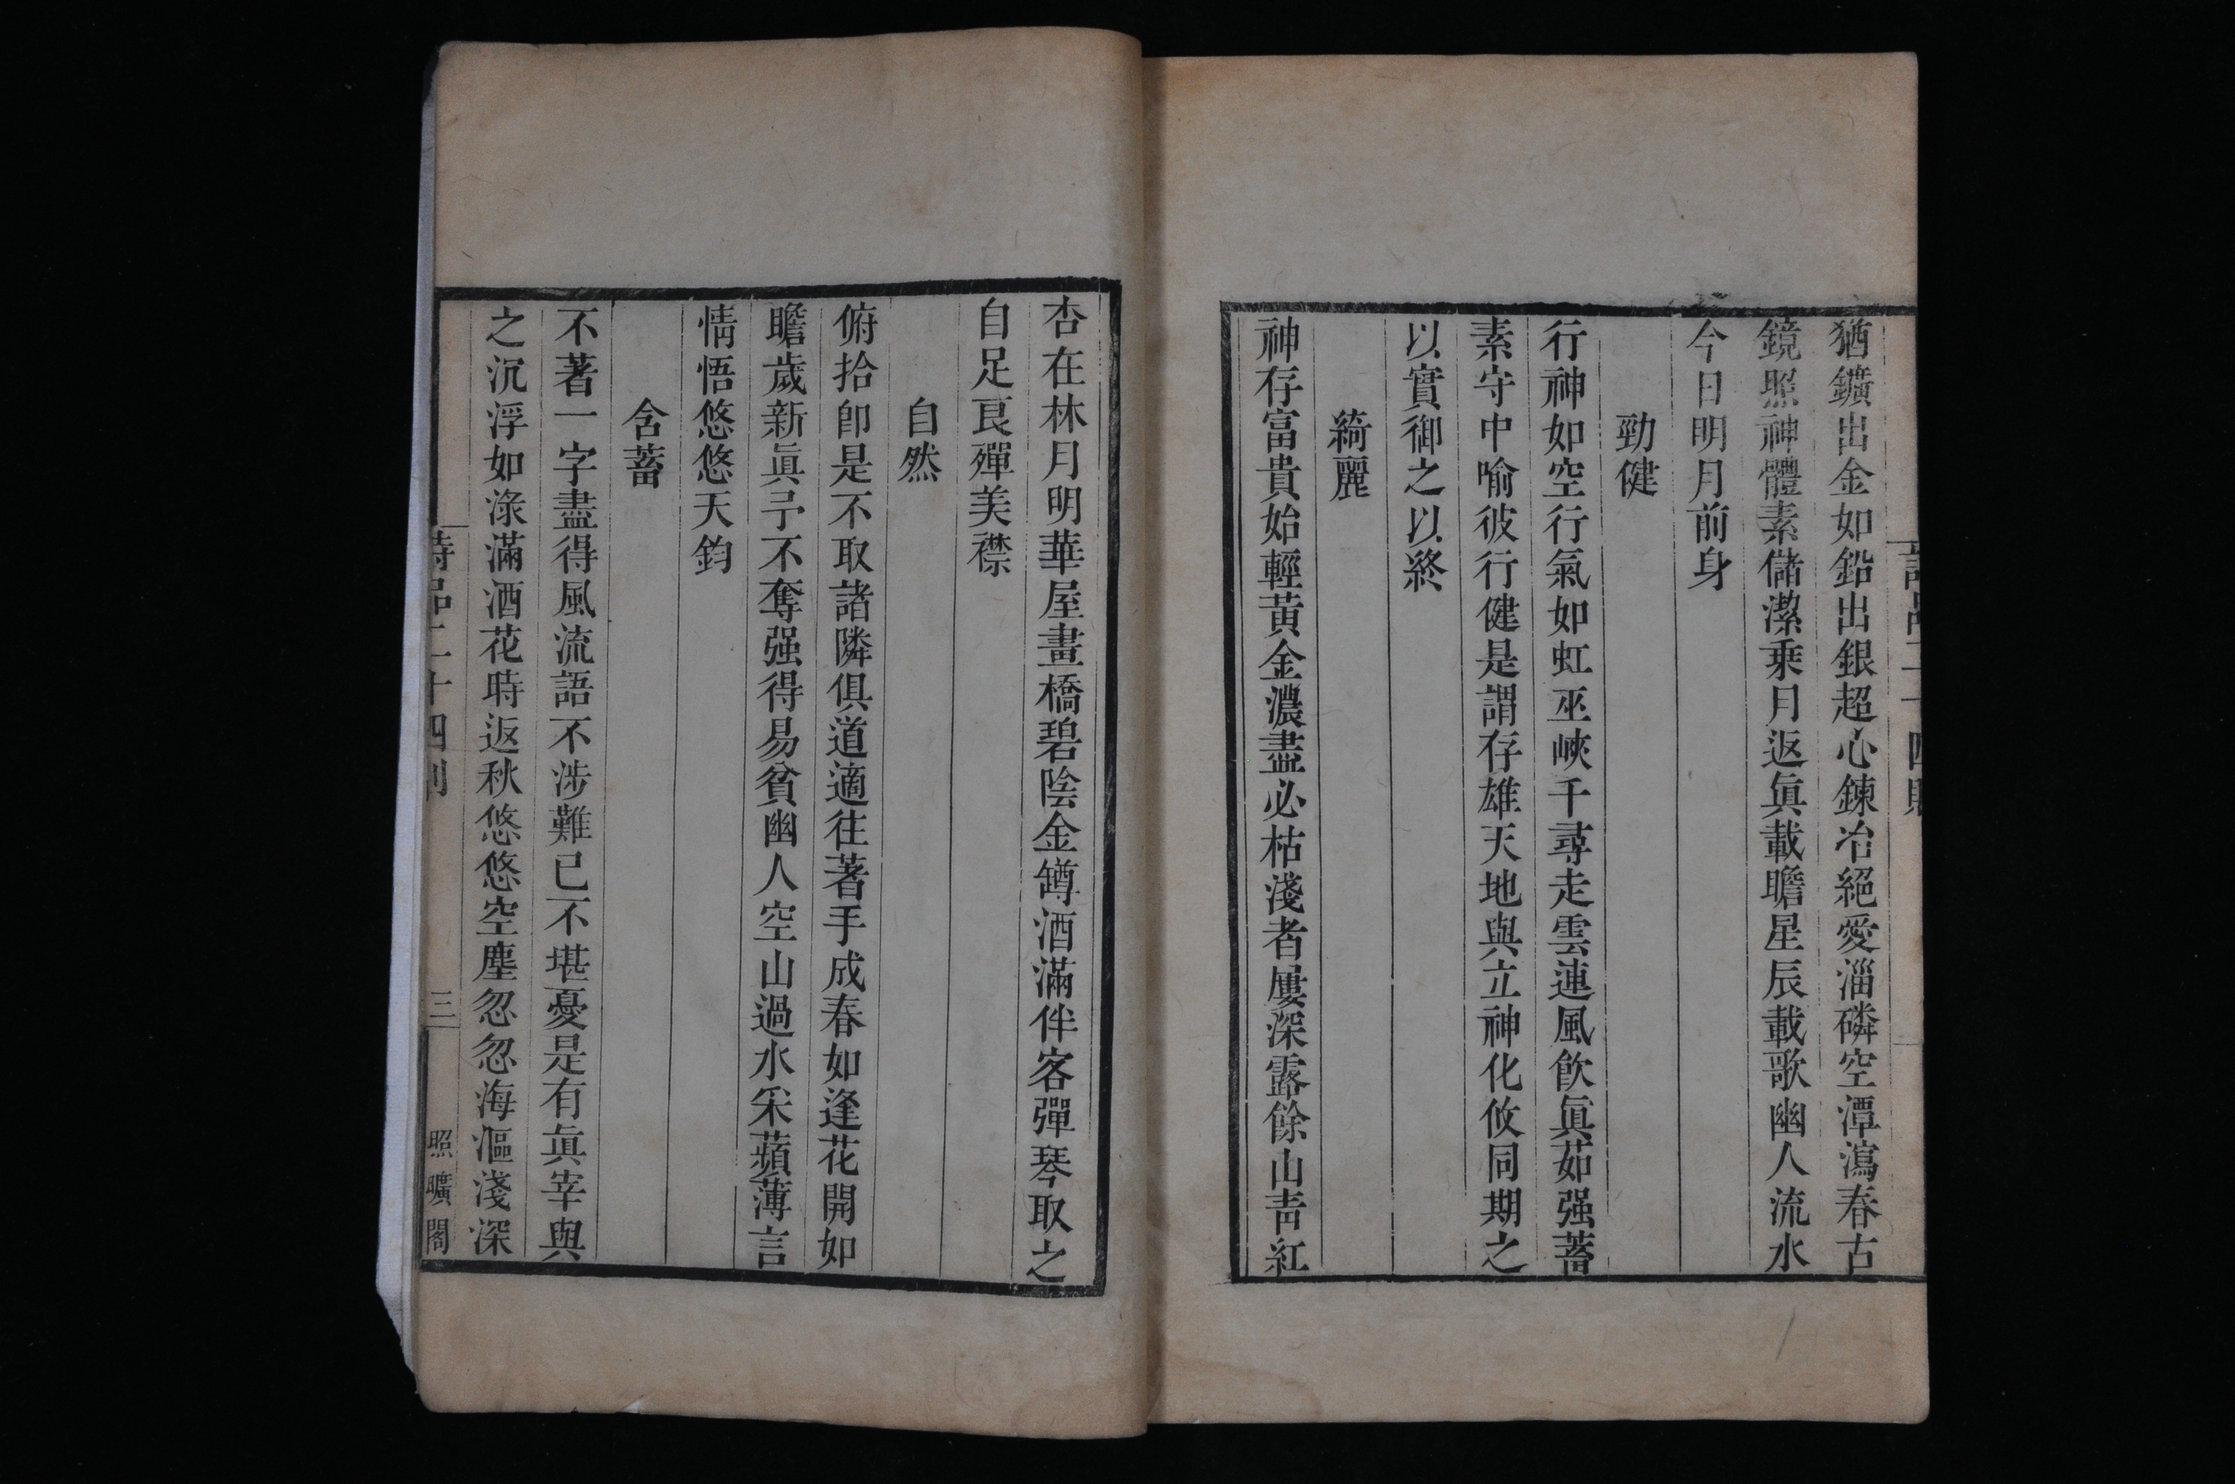 猶鑛出金如鉛出銀超心鍊冶絕愛淄磷空潭瀉春古
鏡照神體素儲潔乘月返眞載瞻星辰載歌幽人流水
今日明月前身
勁健
行神如空行氣如虹巫峽千尋走雲連風飮眞茹强蓄
素守中喻彼行健是謂存雄天地與立神化攸同期之
以實御之以終
綺麗
神存富貴始輕黃金濃盡必枯淺者屢深露餘山靑紅
杏在林月明華屋畫橋碧陰金罇酒滿伴客彈琴取之
自足良殫美襟
自然
俯拾卽是不取諸隣俱道適往著手成春如逢花開如
瞻歲新眞予不奪强得易貧幽人空山過水采蘋薄言
情悟悠悠天鈞
含蓄
不著一字盡得風流語不涉難已不堪憂是有眞宰與
之沉浮如淥滿酒花時返秋悠悠空塵忽忽海漚淺深
詩品二十四則
三
照曠閣